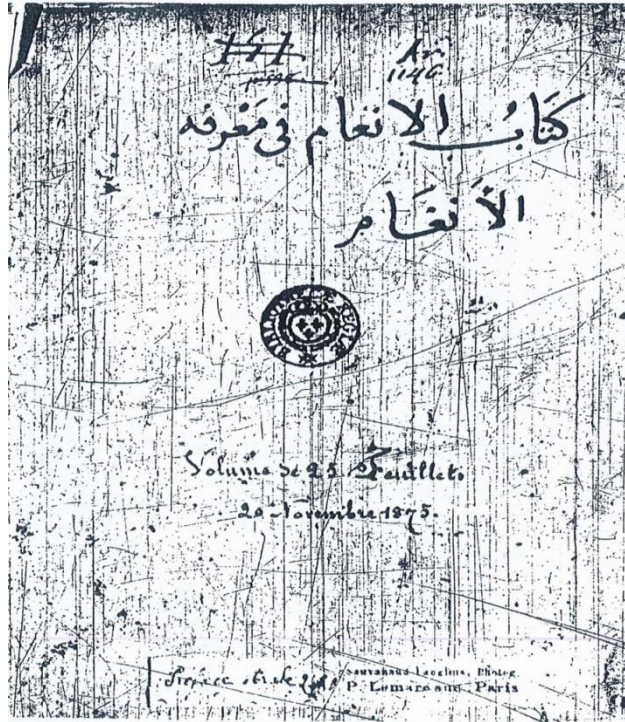 Ar
1146
كتاب الانعام في معرفه
الأنغام
Volume de 25 Feuillets
20 Novembre 1875.
Sauvanaud Laoelius, Photog
P. Lumareaud, Paris